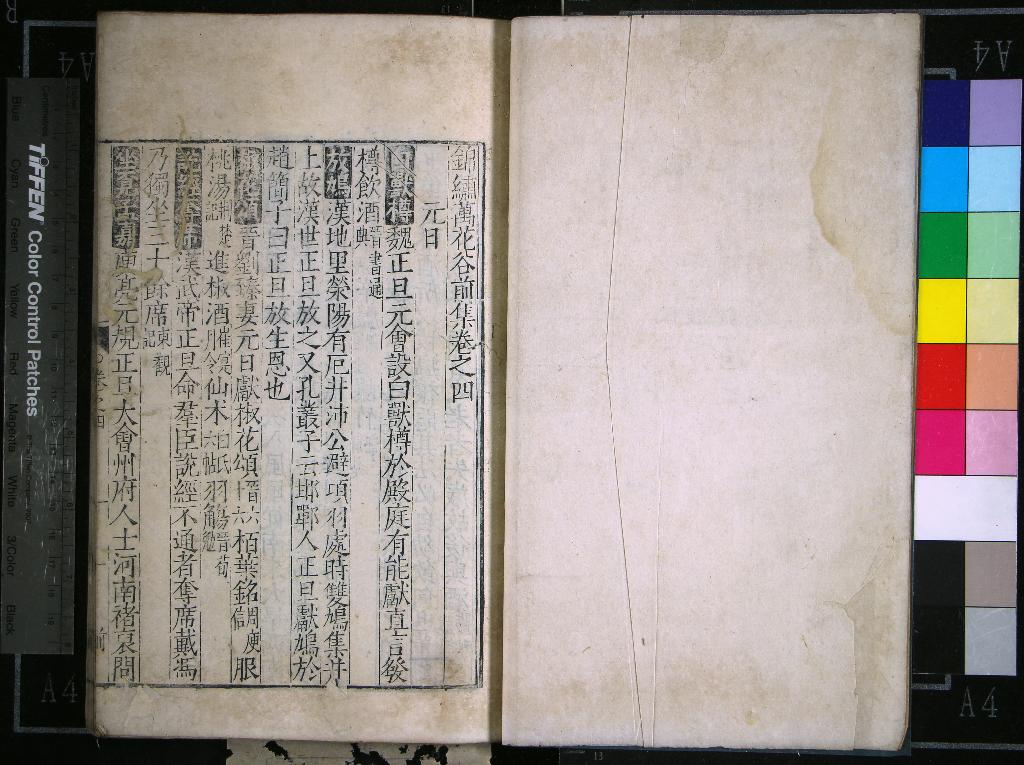 錦繡萬花谷前集卷之四
元日
獸樽魏正旦元會設白獸樽於殿庭有能獻直言發
樽飲酒晉書通典
放鳩漢地里榮陽有厄井沛公避項羽處時雙鳩集井
上故漢世正旦放之又孔叢子云邯鄲人正旦獻鳩於
趙簡子曰正旦放生恩也
晉劉臻妻元日獻椒花頌晉六栢葉銘庾信調服
桃湯荊楚記進椒酒崔寔月令仙木六帖白羝羽觴
漢武帝正旦命羣臣說經不通者奪席戴馮
乃獨坐五十餘席東觀記
坐嘉孟嘉庾元規正旦大會州府人士河南褚裒問
卷之四
前
A4
A4
A4
A4
TIFFEN Color Control Patches
Centimetres
Blue
Cyan
Green
Yellow
Red
Magenta
White
3/Color
Black